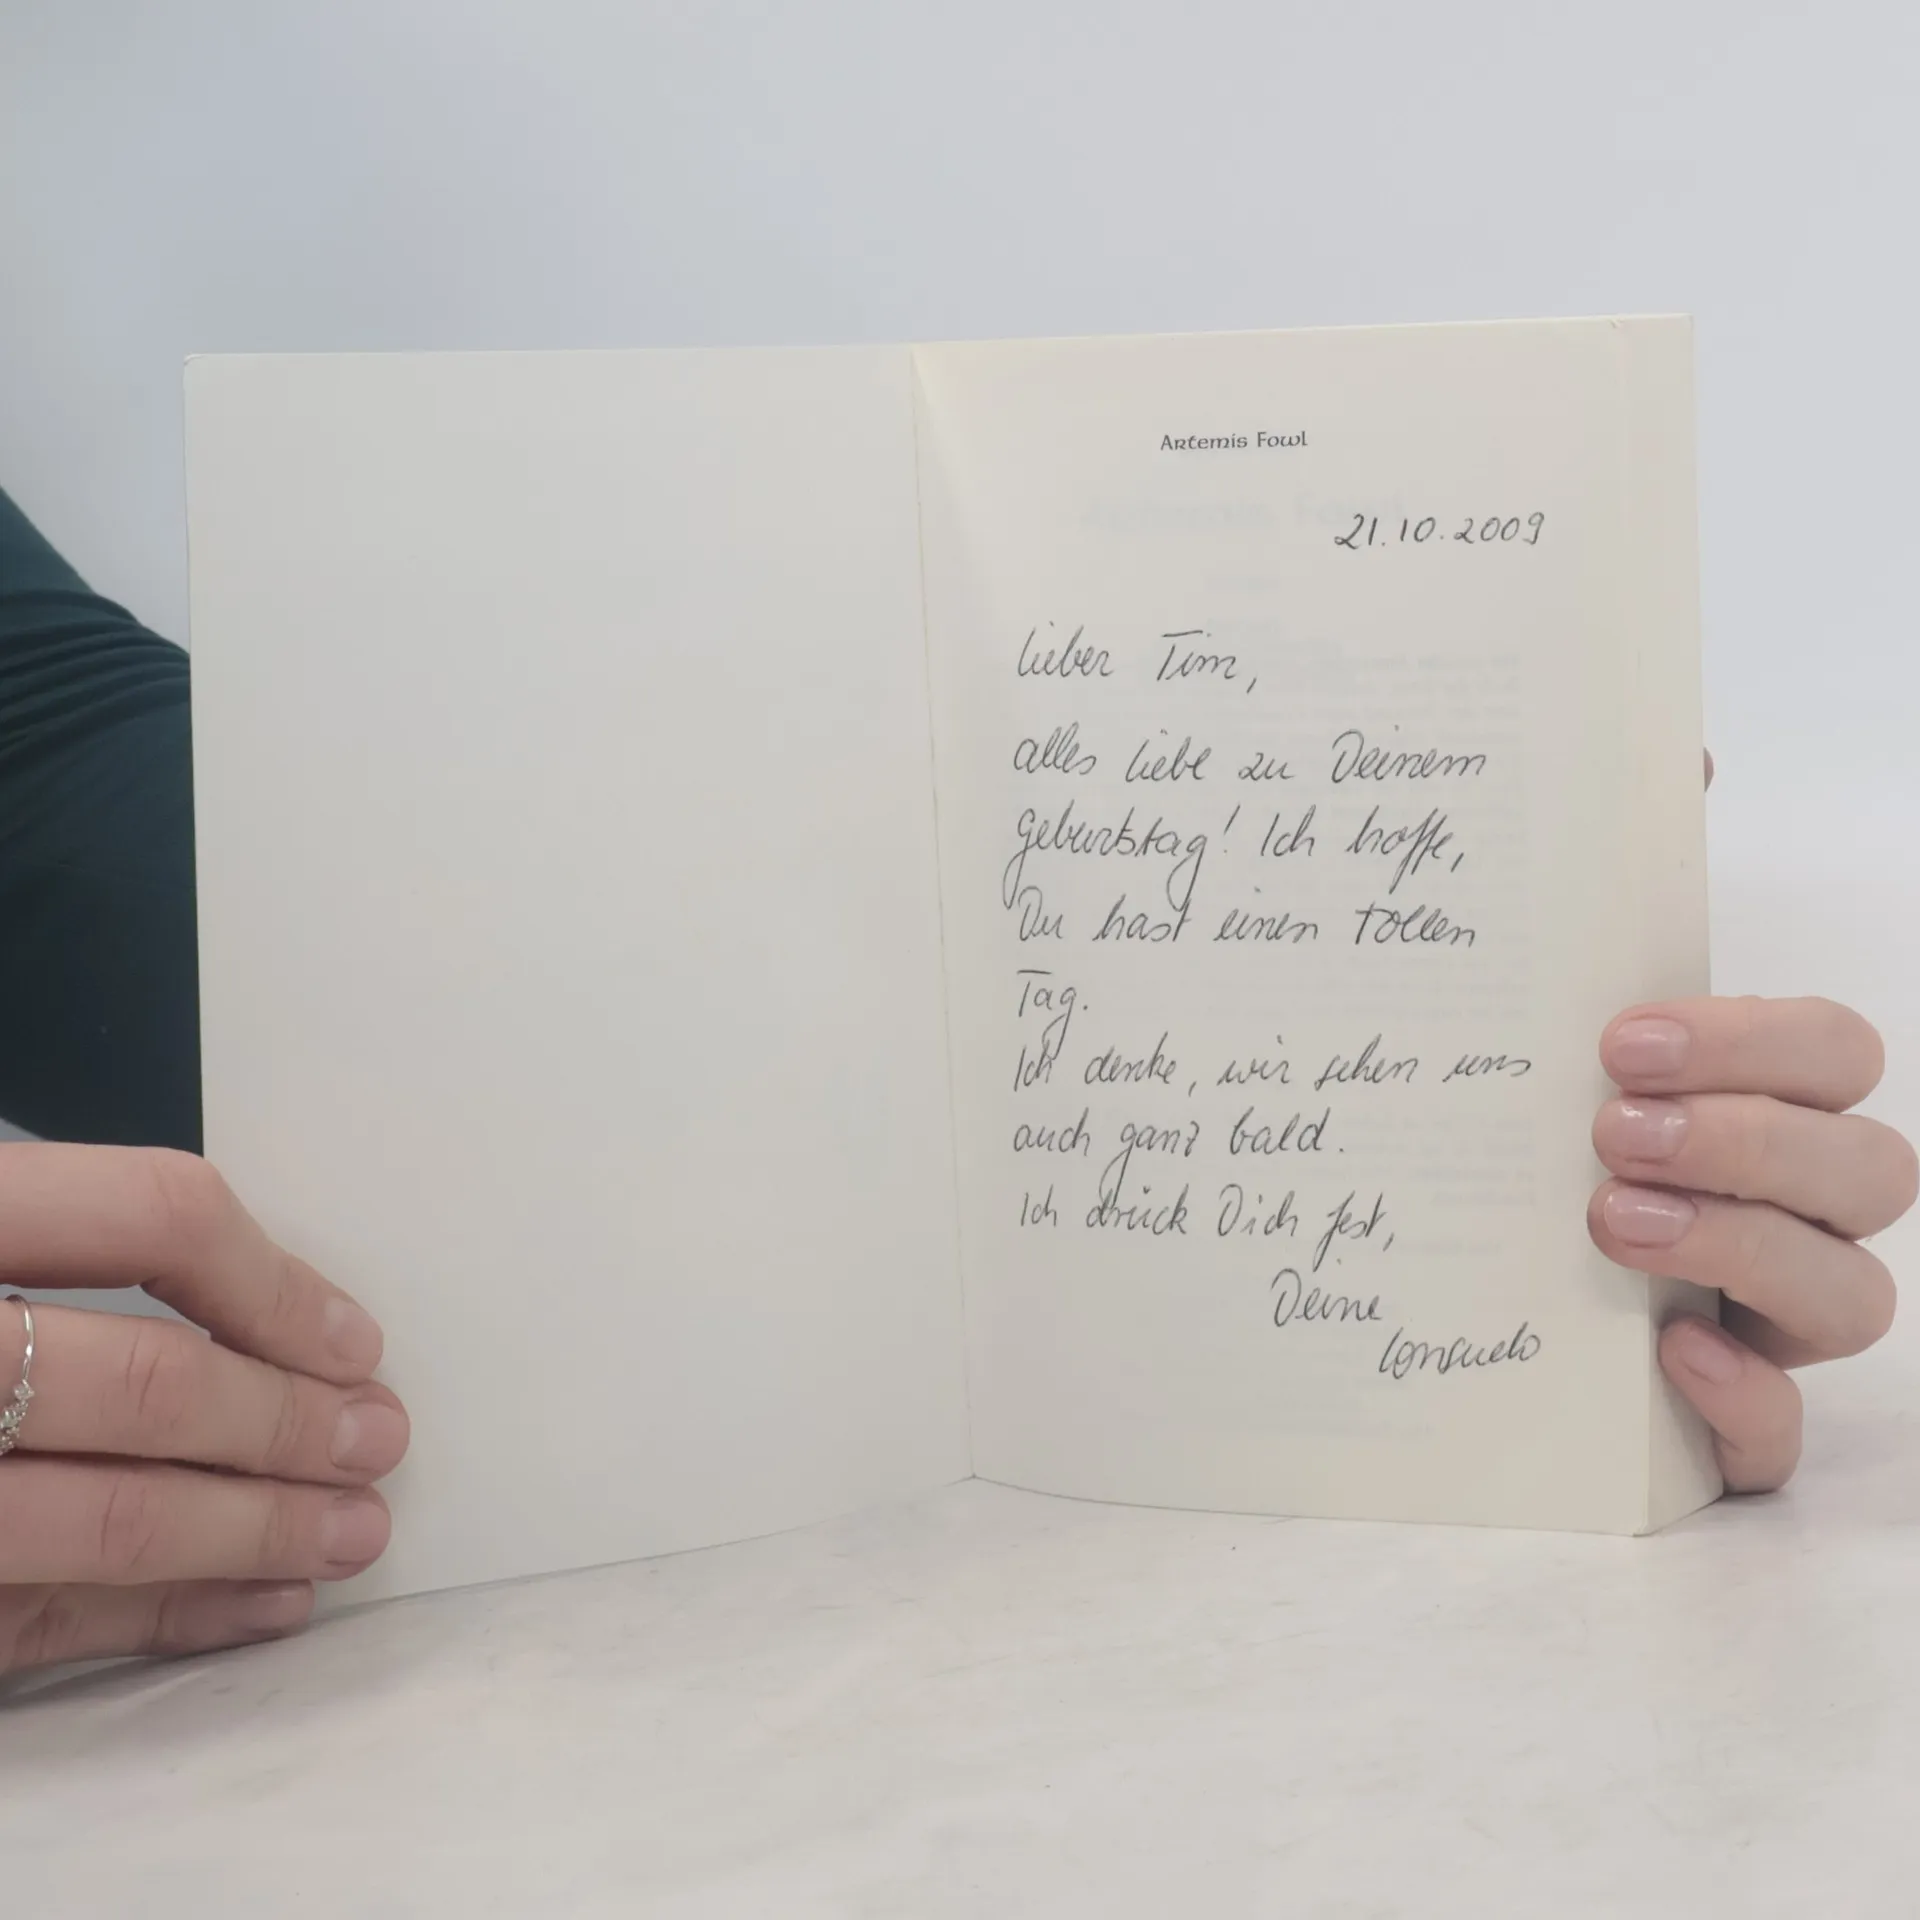 Artemis Fowl
21.10.2009
Lieber Tim,
alles Liebe zu Deinem
Geburtstag! Ich hoffe,
Du hast einen tollen
Tag.
Ich denke, wir sehen uns
auch ganz bald.
Ich drück Dich fest,
Deine
Consuelo